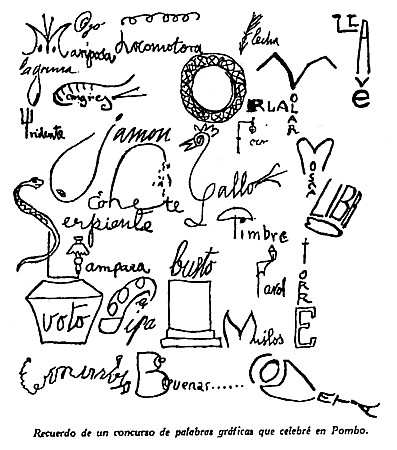 Ojo
Mariposa
Locomotora
Flecha
LLAVE
Lagrima
Cangrejo
ORLA
VOLAR
Tridente
Jamon
Gallo
MOSCA
Cohete
Serpiente
Timbre
Lampara
busto
Farol
TORRE
voto
Buenas......
Recuerdo de un concurso de palabras gráficas que celebré en Pombo.